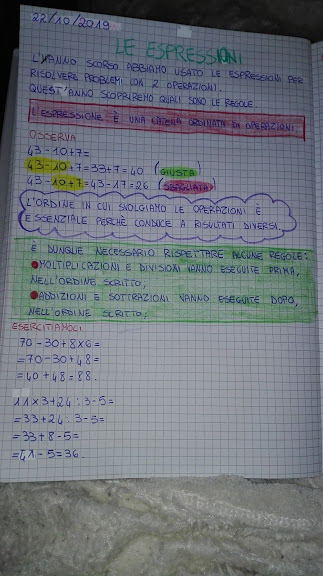 22/10/2019
LE ESPRESSIONI
L'ANNO SCORSO ABBIAMO USATO LE ESPRESSIONI PER
RISOLVERE PROBLEMI CON 2 OPERAZIONI.
QUEST'ANNO SCOPRIREMO QUALI SONO LE REGOLE.
L'ESPRESSIONE È UNA CATENA ORDINATA DI OPERAZIONI
OSSERVA
43-10+7=
43-10+7=33+7=40 (GIUSTA)
43-10+7=43-17=26 (SBAGLIATA)
L'ORDINE IN CUI SVOLGIAMO LE OPERAZIONI È
ESSENZIALE PERCHÈ CONDUCE A RISULTATI DIVERSI.
È DUNQUE NECESSARIO RISPETTARE ALCUNE REGOLE:
•MOLTIPLICAZIONI E DIVISIONI VANNO ESEGUITE PRIMA,
NELL'ORDINE SCRITTO;
•ADDIZIONI E SOTTRAZIONI VANNO ESEGUITE DOPO,
NELL'ORDINE SCRITTO;
ESERCITIAMOCI
70-30+8×6=
=70-30+48=
=40+48=88.
11×3+24:3-5=
=33+24:3-5=
=33+8-5=
=41-5=36.